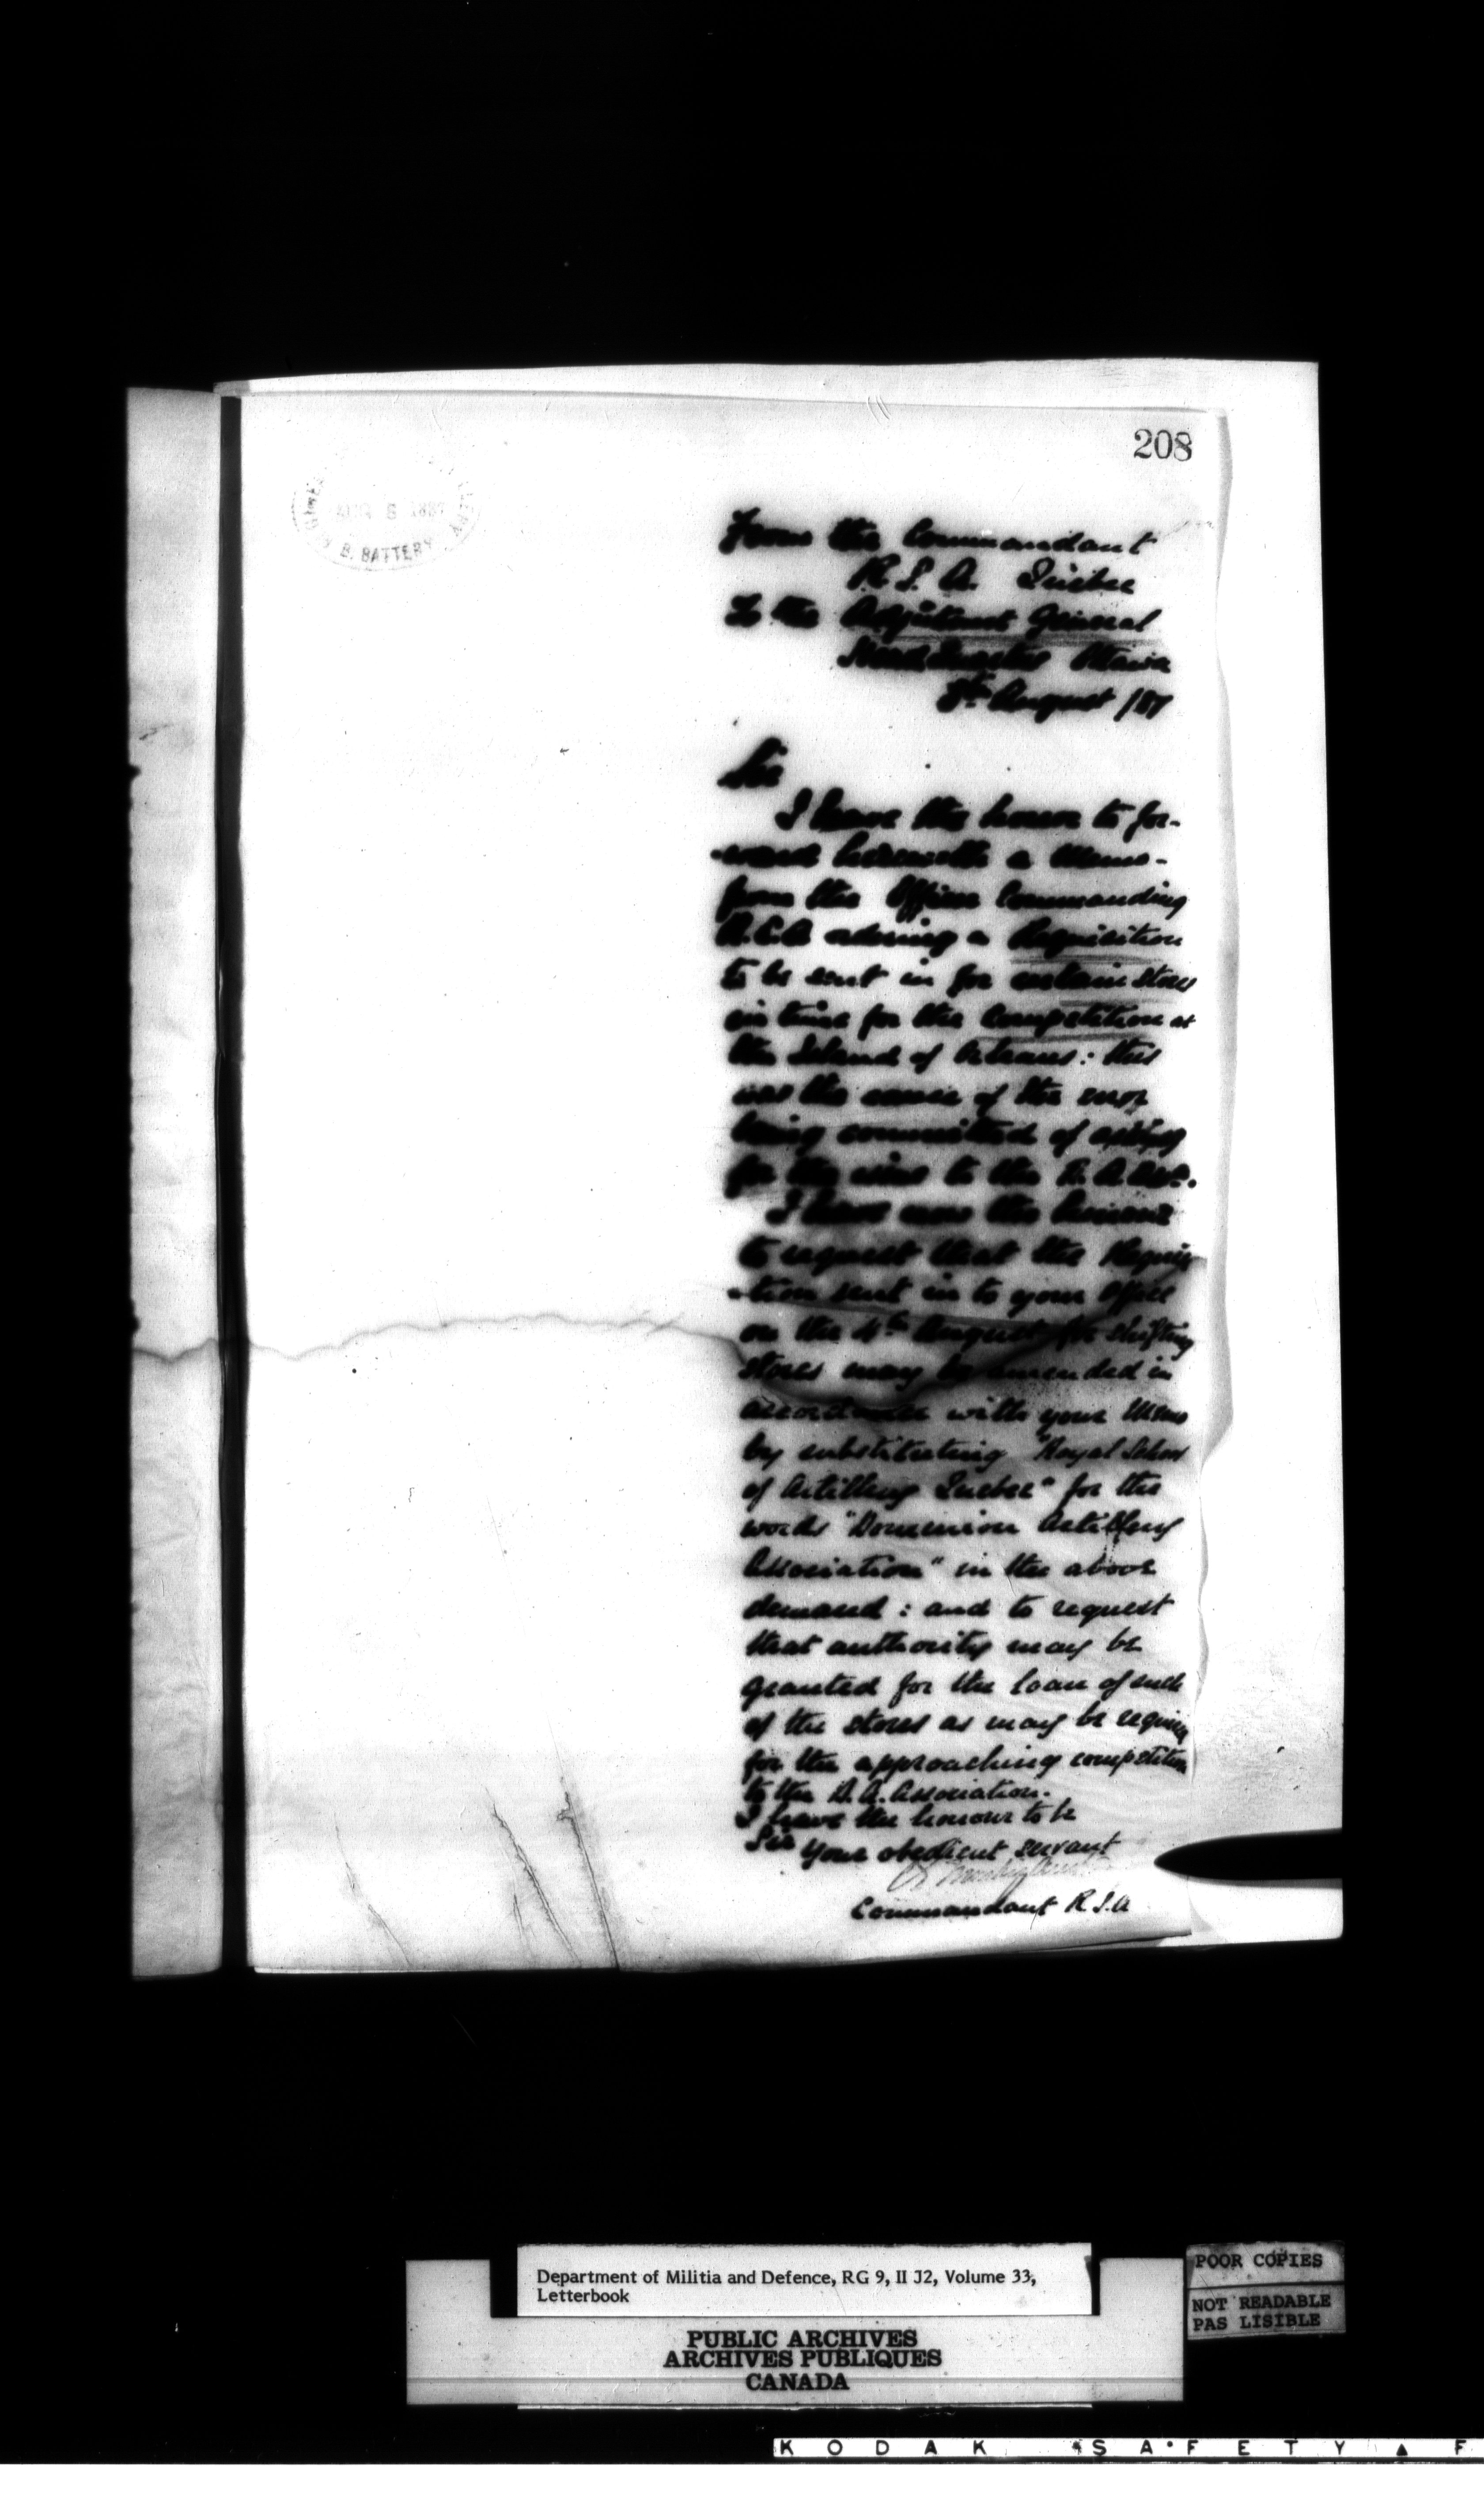 208
AUG 8 1887
B. BATTERY
From the Commandant
R. S. A. Quebec
To the Adjutant General
Head Quarters Ottawa
8th August /87
Sir
I have the honor to for-
-ward herewith a Memo-
from the Officer Commanding
R.C.A. a Requisition
to be sent in for certain stores
in time for the Competition at
the Island of Orleans: this
was the cause of the error
being committed of asking
for the to the D. A. Assn.
I have now the honour
to request that the Requisi
-tion sent in to your Office
on the 4th August for shifting
stores may be amended in
accordance with your Memo
by substituting "Royal School
of Artillery Quebec" for the
words "Dominion Artillery
Association" in the above
demand: and to request
that authority may be
granted for the loan of such
of the stores as may be required
for the approaching competition
to the D.A. Association.
I have the honour to be
Sir
Your obedient servant
Commandant R.S.A
Department of Militia and Defence, RG 9, II J2, Volume 33,
Letterbook
PUBLIC ARCHIVES
ARCHIVES PUBLIQUES
CANADA
POOR COPIES
NOT READABLE
PAS LISIBLE
KODAK SAFETY F